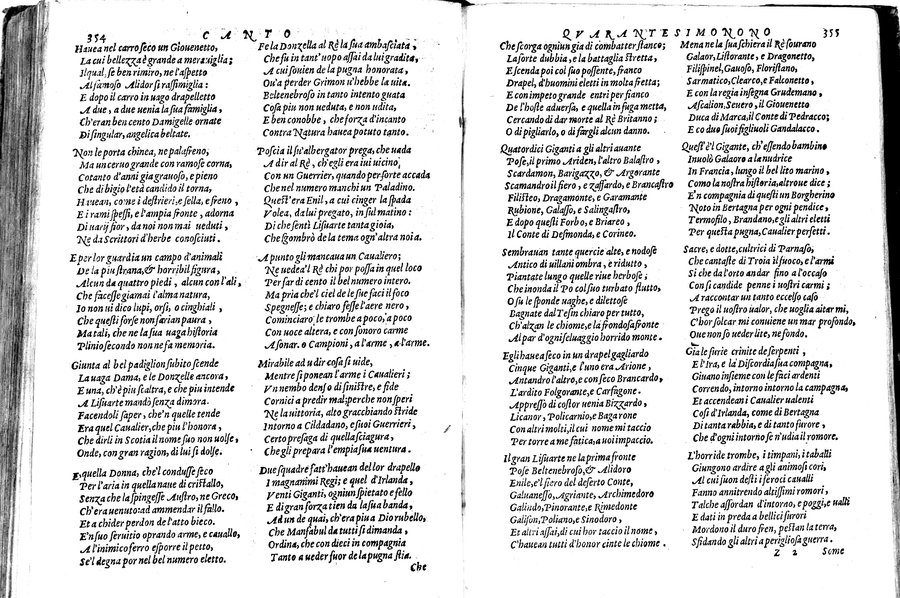 354 CANTO
Hauea nel carro seco un Giouenetto,
La cui bellezza è grande a merauiglia;
Il qual, se ben rimiro, ne l'aspetto
Al famoso Alidor si rassimiglia:
E dopo il carro in uago drapelletto
A due, a due uenia la sua famiglia,
Ch'eran ben cento Damigelle ornate
Di singular, angelica beltate.
Non le porta chinea, ne palafieno,
Ma un ceruo grande con ramose corna,
Cotanto d'anni gia grauoso, e pieno
Che di bigio l'età candido il torna,
Hauean, come i destrieri, e sella, e freno,
E i rami spessi, e l'ampia fronte, adorna
Di uarij fior, da noi non mai ueduti,
Ne da Scrittori d'herbe conosciuti.
E per lor guardia un campo d'animali
De la piu strana, & horribil figura,
Alcun da quattro piedi, alcun con l'ali;
Che facesse giamai l'alma natura,
Io non ui dico lupi, orsi, o cinghiali,
Che questi forse non farian paura,
Ma tali, che ne la sua uaga historia
Plinio secondo non ne fa memoria.
Giunta al bel padiglion subito scende
La uaga Dama, e le Donzelle ancora,
E una, ch'è piu scaltra, e che piu intende
A Lisuarte mandò senza dimora.
Facendoli saper, che'n quelle tende
Era quel Caualier, che piu l'honora,
Che dirli in Scotia il nome suo non uolse,
Onde, con gran ragion, di lui si dolse.
E quella Donna, che'l condusse seco
Per l'aria in quella naue di cristallo,
Senza che la spingesse Austro, ne Greco,
Ch'era uenuto ad ammendar il fallo.
Et a chider perdon de l'atto bieco.
E'n suo seruitio oprando arme, e cauallo,
A l'inimico ferro esporre il petto,
Se'l degna por nel bel numero eletto.
Fe la Donzella al Rè la sua ambasciata,
Che fu in tant'uopo assai da lui gradita,
A cui souien de la pugna honorata,
Ou'a perder Grimon u'hebbe la uita.
Beltenebroso in tanto intento guata
Cosa piu non ueduta, e non udita,
E ben conobbe, che forza d'incanto
Contra Natura hauea potuto tanto.
Poscia il su'albergator prega, che uada
A dir al Rè, ch'egli era iui uicino,
Con un Guerrier, quando per sorte accada
Che nel numero manchi un Paladino.
Quest'era Enil, a cui cinger la spada
Volea, da lui pregato, in sul matino:
Di che sentì Lisuarte tanta gioia,
Che sgombrò de la tema ogn'altra noia.
A punto gli mancaua un Caualiero;
Ne uedea'l Rè chi por possa in quel loco
Per far di cento il bel numero intero.
Ma pria che'l ciel de le sue faci il foco
Spegnesse; e chiaro fesse l'aere nero,
Cominciaro, le trombe a poco, a poco
Con uoce altera, e con sonoro carme
A sonar. o Campioni, a l'arme, a l'arme.
Mirabile ad udir cosa si uide,
Mentre si ponean l'arme i Caualieri;
Vn nembo denso di sinistre, e fide
Cornici a predir mal; perche non speri
Ne la uittoria, alto gracchiando stride
Intorno a Cildadano, e suoi Guerrieri,
Certo presaga di quella sciagura,
Che gli prepara l'empia sua uentura.
Due squadre fatt'hauean del lor drapello
I magnanimi Regi; e quel d'Irlanda,
Venti Giganti, ogniun spietato e fello
E di gran forza tien da la sua banda,
Ad un de quai, ch'era piu Dio rubello,
Che Mansabul da tutti si dimanda,
Ordina, che con dieci in compagnia
Tanto a ueder fuor de la pugna stia.
Che
QVARANTESIMONONO 355
Che scorga ogniun gia di combatter stanco;
La sorte dubbia, e la battaglia stretta,
E scenda poi col suo possente, franco
Drapel, d'huomini eletti in molta fretta;
E con impeto grande entri per fianco
De l'hoste aduersa, e quella in fuga metta,
Cercando di dar morte al Rè Britanno;
O di pigliarlo, o di fargli alcun danno.
Quatordici Giganti a gli altri auante
Pose, il primo Ariden, l'altro Balastro,
Scardamon, Barigazzo, & Argorante
Scamandro il fiero, e zassardo, e Brancastro
Filisteo, Dragamonte, e Garamante
Rubione, Galasso, e Salingastro,
E dopo questi Forbo, e Briareo,
Il Conte di Desmonda, e Corineo.
Sembrauan tante quercie alte, e nodose
Antico di uillani ombra, e ridutto,
Piantate lungo quelle riue herbose;
Che inonda il Po col suo turbato flutto,
O su le sponde uaghe, e dilettose
Bagnate dal Tesin chiaro per tutto,
Ch'alzan le chiome, e la frondosa fronte
Al par d'ogni seluaggio horrido monte.
Egli hauea seco in un drapel gagliardo
Cinque Giganti, e l'uno era Arione,
Antandro l'altro, e con seco Brancardo,
L'ardito Folgorante, e Carfagone.
Appresso di costor uenia Bizzardo,
Licanor, Policarnio, e Bagarone
Con altri molti, il cui nome mi taccio
Per torre a me fatica; a uoi impaccio.
Il gran Lisuarte ne la prima fronte
Pose Beltenebroso, & Alidoro
Enile, e'l fier del deserto Conte,
Galuanesso, Agriante, Archimedoro
Galindo, Pinorante, e Rimedonte
Galison, Poliano, e Sinodoro,
Et altri assai, di cui hor taccio il nome,
C'hauean tutti d'honor cinte le chiome.
Mena ne la sua schiera il Rè sourano
Galaor, Listorante, e Dragonetto,
Filispinel, Gauoso, Floristano,
Sarmatico, Clearco, e Falconetto,
E con la regia insegna Grudemano,
Ascalion, Seuero, il Giouenetto
Duca di Marca, il Conte di Pedracco;
E co due suoi figliuoli Gandalacco.
Quest'è'l Gigante, ch'essendo bambino
Inuolò Galaoro a la nudrice
In Francia, lungo il bel lito marino,
Come la nostra historia, altroue dice;
E'n compagnia di questi un Borgherino
Noto in Bertagna per ogni pendice,
Termofilo, Brandeno, e gli altri eletti
Per questa pugna, Caualier perfetti.
Sacre, e dotte, cultrici di Parnaso,
Che cantaste di Troia il fuoco, e l'armi
Si che da l'orto andar fino a l'occaso
Con si candide penne i uostri carmi;
A raccontar un tanto eccelso caso
Prego il uostro ualor, che uoglia aitarmi,
C'hor solcar mi conuiene un mar profondo,
Oue non so ueder lito, ne fondo.
Gia le furie crinite de serpenti,
E l'Ira, e la Discordia sua compagna,
Giuano insieme con le faci ardenti
Correndo, intorno intorno la campagna,
Et accendean i Caualier ualenti
Cosi d'Irlanda, come di Bertagna
Di tanta rabbia, e di tanto furore,
Che d'ogni intorno se n'udia il romore.
L'horride trombe, i timpani, i taballi
Giungono ardire a gli animosi cori,
Al cui suon desti i feroci caualli
Fanno annitrendo altissimi romori,
Talche assordan d'intorno, e poggi, e ualli
E dati in preda a bellici furori
Mordono il duro fren, pestan la terra,
Sfidando gli altri a perigliosa guerra.
Z 2 Some